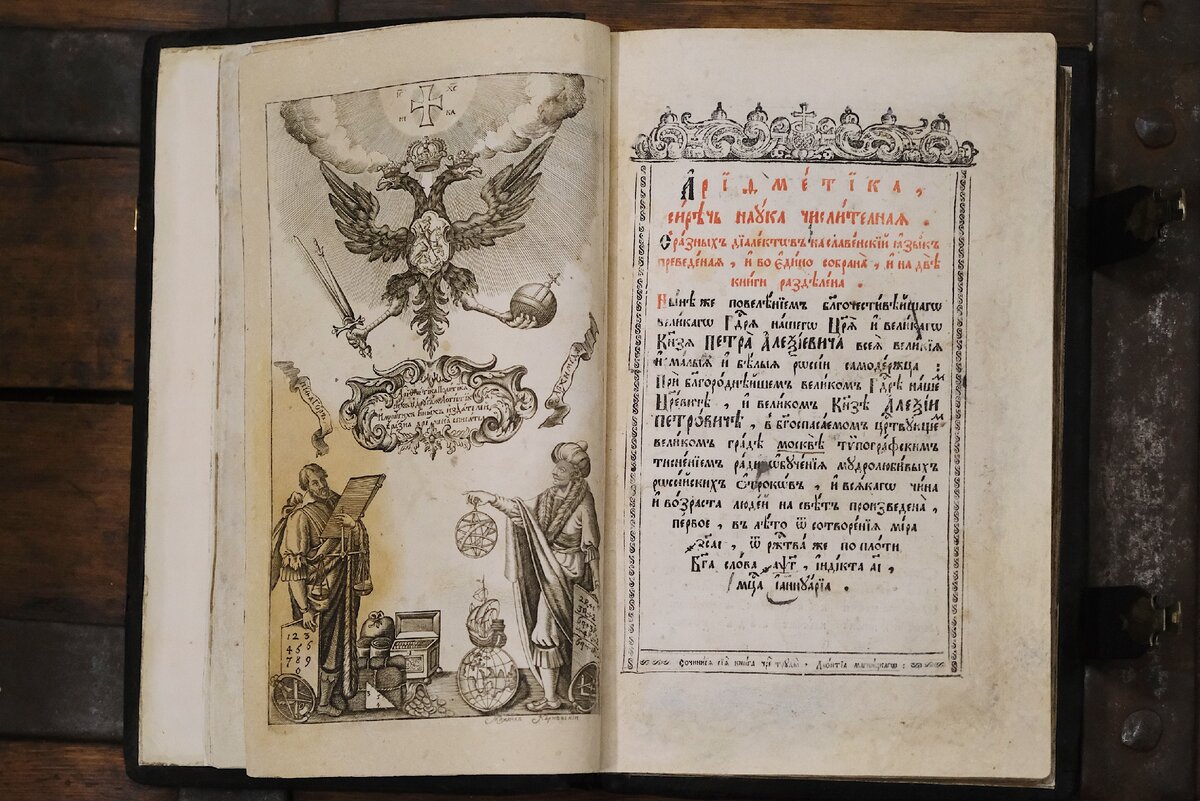 ІС ХС
НИ КА
ПИѲАГОРЪ
1 2 3
4 5 6
7 8 9
0
Арїѳме́тїка,
си́рѣчь наꙋ́ка числи́телнаѧ.
Ѿ ра́зныхъ дїале́ктѡвъ на славе́нскїй ꙗ҆зы́къ
преведе́наѧ, и҆ во є҆ди́но собрана̀, и҆ на двѣ̀
кни́ги раздѣле́на.
Ны́нѣ же повелѣ́нїемъ бл҃гочести́вѣйшагѡ
вели́кагѡ Гдⷭ҇рѧ на́шегѡ Цр҃ѧ̀ и҆ вели́кагѡ
Кн҃зѧ ПЕТРА̀ А҆ЛЕѮІ́ЕВИЧА всеѧ̀ вели́кїѧ
и҆ ма́лыѧ и҆ бѣ́лыѧ рѡссі́и самоде́ржца:
При бл҃горо́днѣйшемъ вели́комъ Гдⷭ҇рѣ на́шемъ
Цр҃е́вичѣ, и҆ вели́комъ Кн҃зѣ А҆ЛЕѮІ́И
ПЕТРО́ВИЧѢ, в бг҃оспаса́емомъ цр҃твꙋ́ющемъ
вели́комъ гра́дѣ москвѣ̀ тѷпогра́фскимъ
тисне́нїемъ ра́ди ѡ҆бꙋче́нїѧ мꙋдролюби́выхъ
рѡссі́йскихъ ѻ҆́трокѡвъ, и҆ всѧ́кагѡ чи́на
и҆ во́зраста люде́й на свѣ́тъ произведена̀,
пе́рвое, въ лѣ́то ѿ сотворе́нїѧ ми́ра
҂зсаі, ѿ ржⷭ҇тва́ же по пло́ти
Бг҃а сло́ва ҂аѱг, і҆ндї́кта аі,
мцⷭ҇а і҆аннꙋа́рїа.
Сочини́сѧ сїѧ̀ кни́га чре́з трꙋды̀ Лео́нтїа магни́цкагѡ: